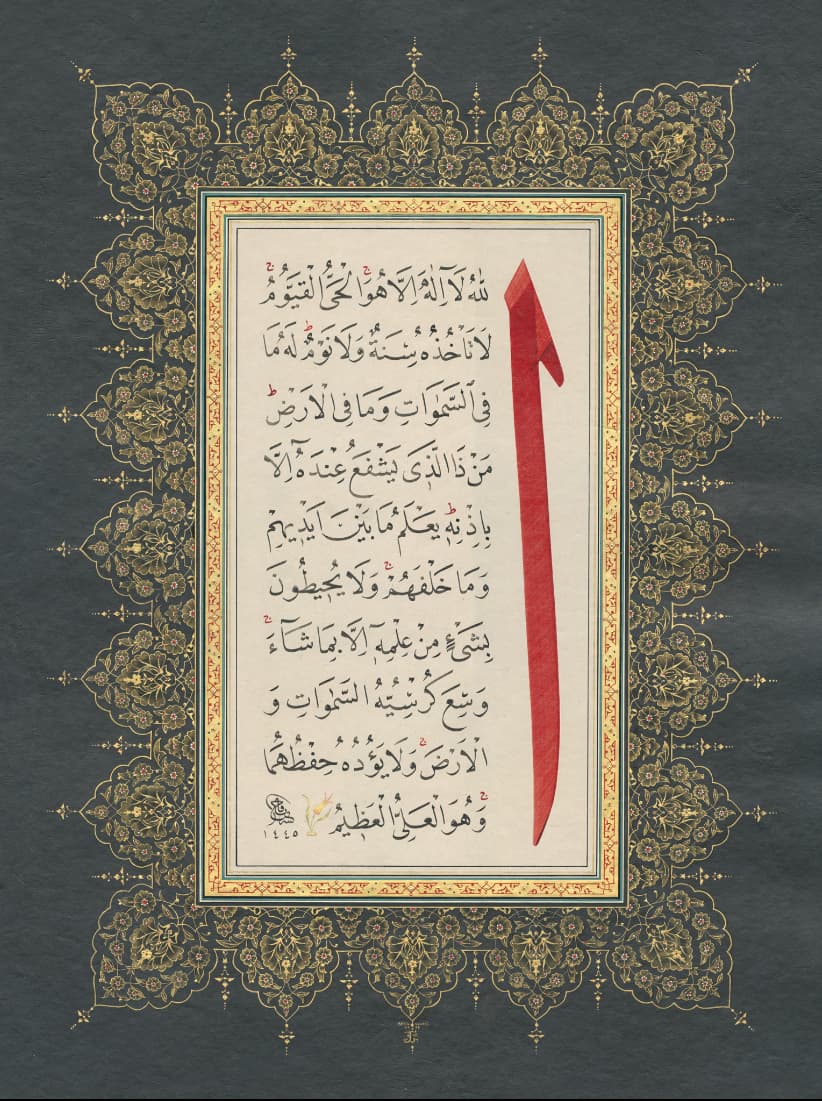 اللّٰهُ لَآ اِلٰهَ اِلَّا هُوَۚ اَلْحَىُّ الْقَيُّومُۚ
لَا تَاْخُذُهُ سِنَةٌ وَلَا نَوْمٌۜ لَهُ مَا
فِى السَّمٰوَاتِ وَمَا فِى الْاَرْضِۜ
مَنْ ذَا الَّذٖى يَشْفَعُ عِنْدَهُٓ اِلَّا
بِاِذْنِهٖۜ يَعْلَمُ مَا بَيْنَ اَيْدٖيهِمْ
وَمَا خَلْفَهُمْۚ وَلَا يُحٖيطُونَ
بِشَىْءٍ مِنْ عِلْمِهٖٓ اِلَّا بِمَا شَآءَۚ
وَسِعَ كُرْسِيُّهُ السَّمٰوَاتِ وَ
الْاَرْضَۚ وَلَا يَؤُدُهُ حِفْظُهُمَاۚ
وَهُوَ الْعَلِىُّ الْعَظٖيمُ
١٤٤٥